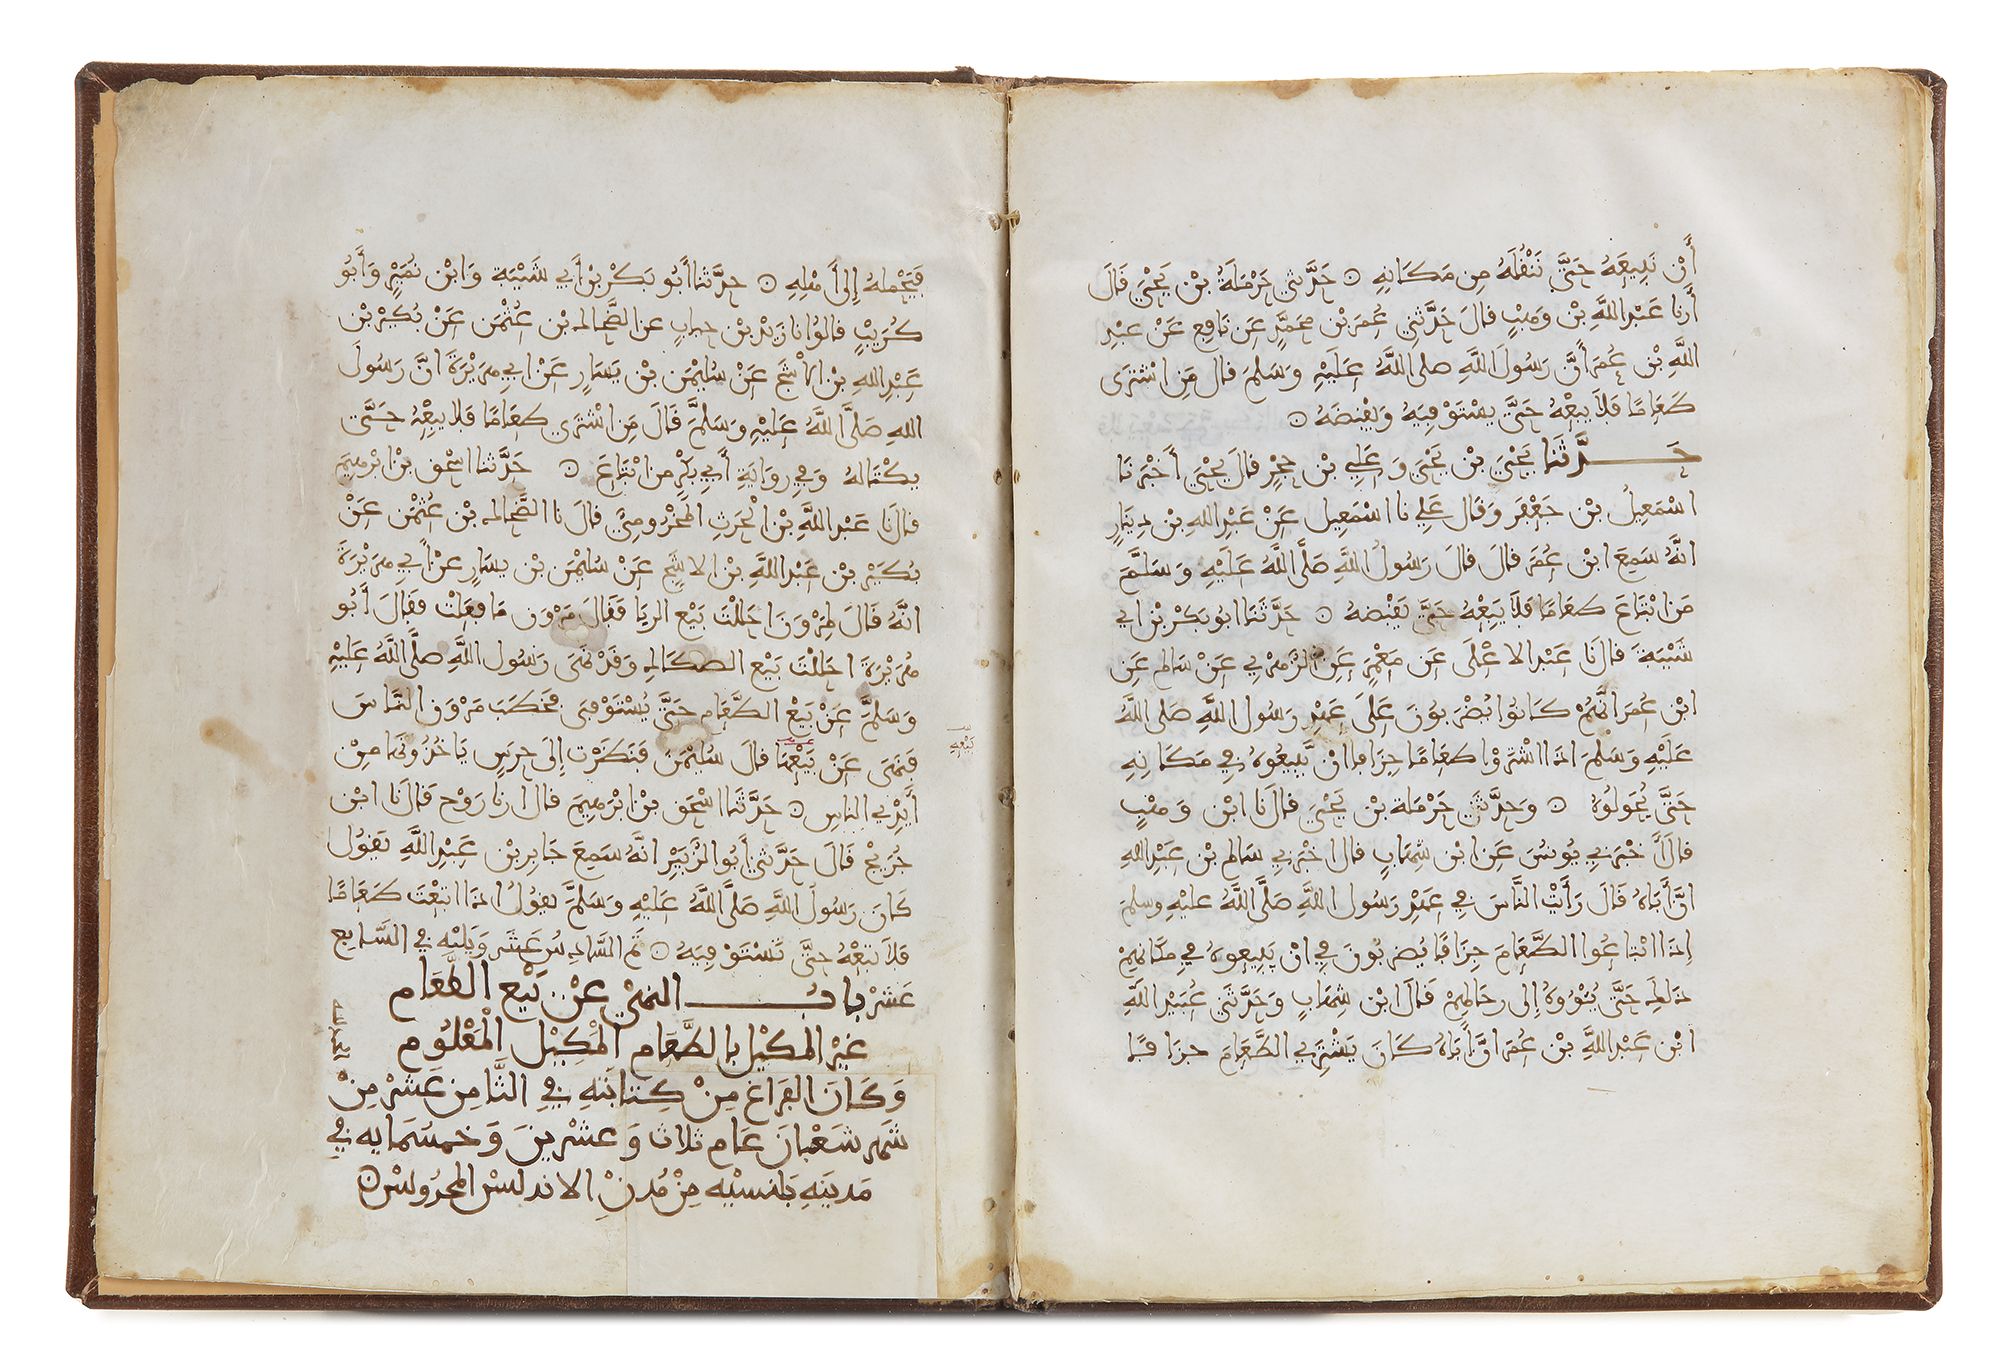 أَنْ نَبِيعَهُ حَتَّى نَنْقُلَهُ مِن مَكَانِهِ ۝ حَدَّثني حَرْمَلَةُ بْن يَحْيَى قَالَ
أَرنا عَبْدُ اللَّهِ بْن وَهْبٍ قالَ حَدَّثني عُمَرُ بْن مُحَمَّدٍ عَن نَافِعٍ عَنْ عبْدِ
اللَّهِ بْن عُمَرَ أَنَّ رَسُولَ اللَّهِ صلى اللَّهُ عَلَيْهِ وَسَلم قال مَنِ اشْتَرَى
طَعَامًا فَلَا يَبِعْهُ حَتَّى يَسْتَوْفِيَهُ وَيَقْبِضَهُ ۝
حَدَّثَنَا يَحْيَى بْن يَحْيَى وَعَلِي بْن حُجْرٍ قالَ يَحْيَى أَخْبَرَنَا
اسْمَعِيلُ بْن جَعْفَر وَقَال عَلِي نا اسْمَعِيل عَنْ عَبْدِ اللهِ بْن دِينَارٍ
انَّهُ سَمِعَ ابْن عُمَرَ قَالَ قَالَ رَسُولُ اللَّهِ صَلَّى اللَّهُ عَلَيْهِ وَسَلَّمَ
مَنِ ابْتَاعَ طَعَامًا فَلَا يَبِعْهُ حَتَّى يَقْبِضَهُ ۝ حَدَّثَنَا ابُو بَكْر بْن ابي
شَيْبَةَ قَالَ نَا عَبْدُ الاعْلَى عَن مَعْمَرٍ عَنِ الزُّهْرِي عَنْ سَالم عَنِ
ابْن عُمَرَ انَّهُمْ كَانُوا يُضْرَبُونَ عَلَى عَهْدِ رَسُولِ اللَّهِ صَلى اللَّهُ
عَلَيْهِ وَسَلمَ اذَا اشْتَرَوْا طَعَامًا جِزَافًا انْ يَبِيعُوهُ فِي مَكَانِهِ
حَتَّى يُحَوِّلُوهُ ۝ وحَدَّثَني حَرْمَلَة بْن يَحْيَى قَالَ نَا ابْن وَهْبٍ
قَالَ أَخْبَرَنِي يُونُسُ عَنِ ابْن شِهَابٍ قال اخْبَرَنِي سَالم بْن عَبْدِ اللَّهِ
انَّ أَبَاهُ قَالَ رَأَيْتُ النَّاسَ فِي عَهْدِ رَسُولِ اللَّهِ صَلَّى اللَّهُ عليْهِ وسلمَ
إِذَا ابْتَاعُوا الطَّعَامَ جِزَافًا يُضْرَبُونَ فِي انْ يَبِيعُوهُ فِي مَكَانِهِمْ
ذَلِكَ حَتَّى يُئْوُوهُ إِلَى رِحَالِهِمْ قَالَ ابْن شِهَابٍ وَحَدَّثَنِي عُبَيْدُ اللَّهِ
ابْن عَبْدِ اللَّهِ بْن عُمَرَ انَّ أَبَاهُ كَانَ يَشْتَرِي الطَّعَامَ جزَافًا
فَيَحْمِلهُ إِلَى أَهْلِهِ ۝ حدَّثنا أَبُو بَكْرِ بْن أَبي شَيْبَة وَابْن نُمَيْرٍ وَأَبُو
كُرَيْبٍ قالُوا نا زَيْدُ بْن حبابٍ عن الضَّحَّاك بْن عُثْمَن عَنْ بُكَيْر بْن
عَبْدِ اللهِ بْن الاشَجّ عَنْ سُلَيْمَن بْن يَسَارٍ عَنْ ابِي هُرَيْرَةَ انَّ رَسُولَ
اللهِ صَلَّى اللَّهُ عَلَيْهِ وَسَلَّمَ قَالَ مَنِ اشْتَرَى طَعَامًا فَلا يَبِعْهُ حَتَّى
يَكْتَالهُ وَفِي رِوَايَةِ أَبِي بَكْرٍ مَنِ ابْتَاعَ ۝ حَدَّثَنا اسْحَق بْن ابْرَهِيمَ
قَالَ نَا عَبْدُ اللَّهِ بْن الْحَرِث الْمَخْزُومِيُّ قالَ نا الضَّحَّاك بْن عُثْمَن عَنْ
بُكَيْر بْن عَبْدِ اللَّهِ بْن الاشَجّ عَنْ سُلَيْمَن بْن يسَارٍ عَنْ أَبِي هُرَيْرَةَ
انَّهُ قَالَ لِمَرْوَنَ احْلَلْتَ بَيْعَ الرِّبَا فَقَالَ مَرْوَن مَا فَعَلْتُ فَقَالَ أَبُو
هُرَيْرَةَ احْلَلْتَ بَيْعَ الصكَاك وَقَدْ نَهَى رَسُولُ اللَّهِ صَلَّى اللَّهُ عَلَيْهِ
وَسَلَّمَ عَنْ بَيْعِ الطَّعَامِ حَتَّى يُسْتَوْفَى فَخَطَبَ مَرْوَن النَّاسَ
فَنَهَى عَنْ بَيْعِهَا قالَ سُلَيْمَن فَنَظَرْت إِلَى حرسٍ يَاخُذُونَهَا مِنْ
أَيْدِي النَّاسِ ۝ حَدَّثَنَا اسْحَق بْن ابْرَهِيمَ قال ارنا رَوْح قَالَ نَا ابْن
جُرَيْجٍ قَالَ حَدَّثَنِي أَبُو الزُّبَيْرِ انَّهُ سَمِعَ جَابِر بْن عَبْدِ اللَّهِ يَقُولُ
كَانَ رَسُول اللَّهِ صَلَّى اللَّهُ عَلَيْهِ وَسَلَّمَ يقولُ اذَا ابْتَعْتَ طَعَامًا
فَلَا تَبِعْهُ حَتَّى تَسْتَوْفِيَهُ ۝ تم السَّادِسُ عَشَر وَيَلِيهِ فِي السَّابِع
عَشَرَ بَابُ النهْيِ عَنْ بَيْعِ الطَّعَامِ
غَيْرِ المَكِيْلِ بالطَّعَامِ الْمَكِيْلِ الْمَعْلُومِ
وَكَانَ الفَرَاغُ مِنْ كِتَابَتِهِ فِي الثَّامِن عَشَرْ مِنْ
شَهر شَعْبَانَ عَام ثلاث وَعشْرينَ وَخمسَمايه في
مَدينه بَلنسيه مِنْ مُدنِ الاندلس المحرُوس ۝
بَيْعِهِ